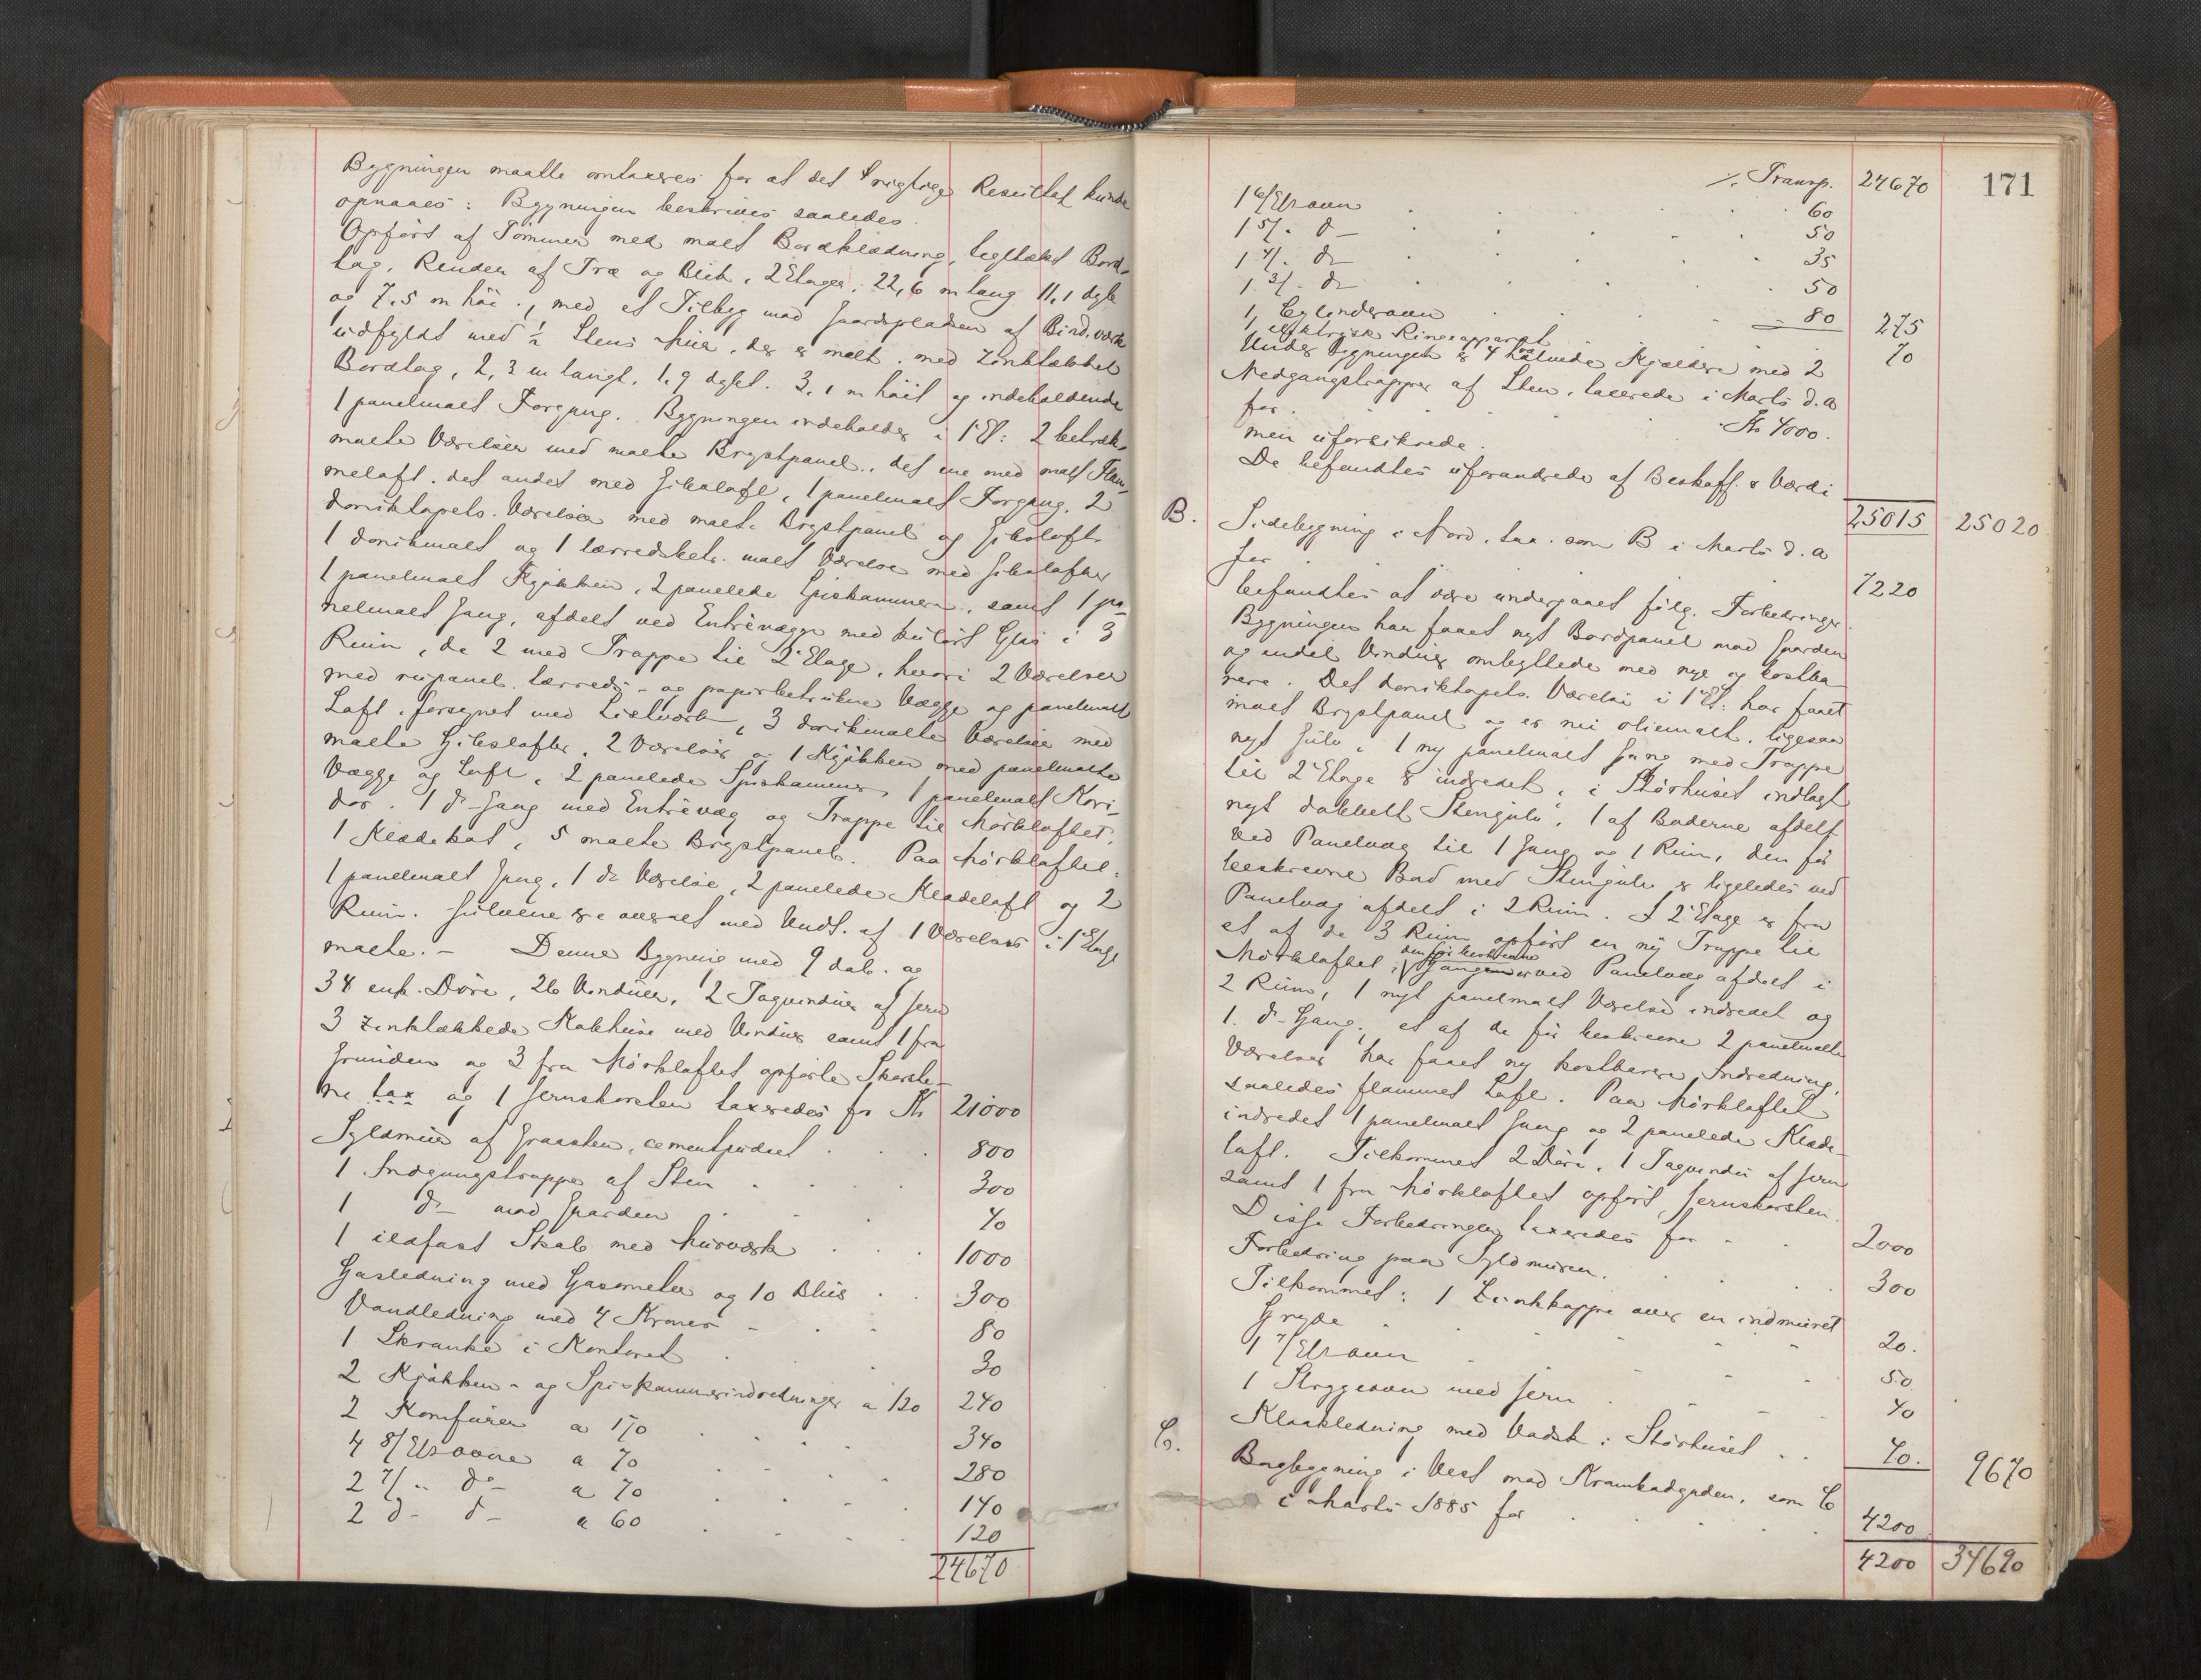 Bygningen maatte omtaxeres for at det rigtige Resultat kunde
opnaaes: Bygningen beskrives saaledes.
Opført af Tømmer med malt Bordklædning, tegltækt Bord-
tag, Render af Træ og Blik, 2 Etager, 22,6 m lang 11,1 dyb
og 7,5 m høi, med et Tilbyg mod Gaardspladsen af Bind.værk
udfyldt med ½ Stens Mur, der er malt, med zinktækket
Bordtag, 2,3 m langt, 1,9 dybt, 3,1 m høit og indeholdende
1 panelmalt Forgang. Bygningen indeholder i 1ste Et: 2 betræk-
malte Værelser med malte Brystpanel, det ene med malt Flam-
meloft, det andet med Gibsloft, 1 panelmalt Forgang, 2
doriktapets. Værelser med malte Brystpanel og Gibsloft.
1 dorikmalt og 1 lærredsbetr. malt Værelse med Gibslofter
1 panelmalt Kjøkken, 2 panelede Spiskammere, samt 1 pa-
nelmalt Gang, afdelt ved Entrévægge med kulørt Glas i 3
Rum, de 2 med Trappe til 2den Etage, hvori 2 Værelser
med rupanel. lærreds- og papirbetrukne Vægge og panelmalt
Loft, forsynet med Listværk, 3 dorikmalte Værelser med
malte Gibslofter, 2 Værelser og 1 Kjøkken med panelmalte
Vægge og Loft, 2 panelede Spiskamere, 1 panelmalt Kori-
dor, 1 do Gang med Entrévæg og Trappe til Mørkloftet,
1 Klædekot, 5 malte Brystpanel. Paa Mørkloftet:
1 panelmalt Gang, 1 do Værelse, 2 panelede Klædeloft og 2
Rum. Gulvene ere overalt med Undt. af 1 Værelses i 1ste Etage
malte. – Denne Bygning med 9 dob. og
34 enk. Døre, 26 Vinduer, 2 Tagvinduer af Jern
3 zinktækkede Kakhuse med Vinduer samt 1 fra
Grunden og 3 fra Mørkloftet opførte Skorste-
ne tax og 1 Jernskorsten taxeredes for Kr 21000
Syldmur af Graasten, cementpudset 800
1 Indgangstrappe af Sten 300
1 do mod Gaarden 40
1 ildfast Skab med Murværk 1000
Gasledning med Gasometer og 10 Blus 300
Vandledning med 4 Kraner 80
1 Skranke i Kontoret 30
2 Kjøkken- og Spiskammerindredninger a 120 240
2 Komfurer a 170 340
4 8/Etsovne a 70 280
2 7/ " do a 70 140
2 do do a 60 120
24670
171
./. Transp. 24670
1 6/Etsovn 60
1 5/ - do 50
1 4/ - do 35
1 3/ - do 50
1 Cylinderovn 80 275
1 elektrisk Ringeapparat 70
Under Bygningen er 4 hvælvede Kjældere med 2
Nedgangstrapper af Sten, taxerede i Marts d. A
for Kr 4000.
men uforsikrede.
De befandtes uforandrede af Beskaff. & Værdi
25015 25020
B. Sidebygning i Nord, tax. som B i Marts d. A
for 7220
befandtes at være undergaaet følg. Forbedringer.
Bygningen har faaet nyt Bordpanel mod Gaarden
og endel Vinduer ombyttede med nye og kostba-
rere. Det doriktapets. Værelse i 1ste Et: har faaet
malt Brystpanel og er nu oliemalt, ligesaa
nyt Gulv, 1 ny panelmalt Gang med Trappe
til 2den Etage er indredet, i Størhuset indlagt
nyt dobbelt Stengulv, 1 af Boderne afdelt
ved Panelvæg til 1 Gang og 1 Rum, den før
beskrevne Bod med Stengulv er ligeledes ved
Panelvæg afdelt i 2 Rum. I 2den Etage er fra
et af de 3 Rum opført en ny Trappe til
Mørkloftet, den før beskrevne Gang er ved Panelvæg afdelt i
2 Rum, 1 nyt panelmalt Værelse indredet og
1 do Gang, et af de før beskrevne 2 panelmalte
Værelser har faaet ny kostbarere Indredning,
saaledes flammet Loft. Paa Mørkloftet
indredet 1 panelmalt Gang og 2 panelede Klæde-
loft. Tilkommet 2 Døre, 1 Tagvindu af Jern
samt 1 fra Mørkloftet opført Jernskorsten.
Disse Forbedringer taxeredes for 2000
Forbedring paa Syldmuren 300
Tilkommet: 1 Zinkkappe over en indmuret
Gryde 20.
1 4/Etsovn 50
1 Strygeovn med Jern 40
Kloakledning med Vadsk i Størhuset 40. 9670
C. Bagbygning i Vest mod Krambodgaden, som C
i Marts 1885 for 4200
4200 34690